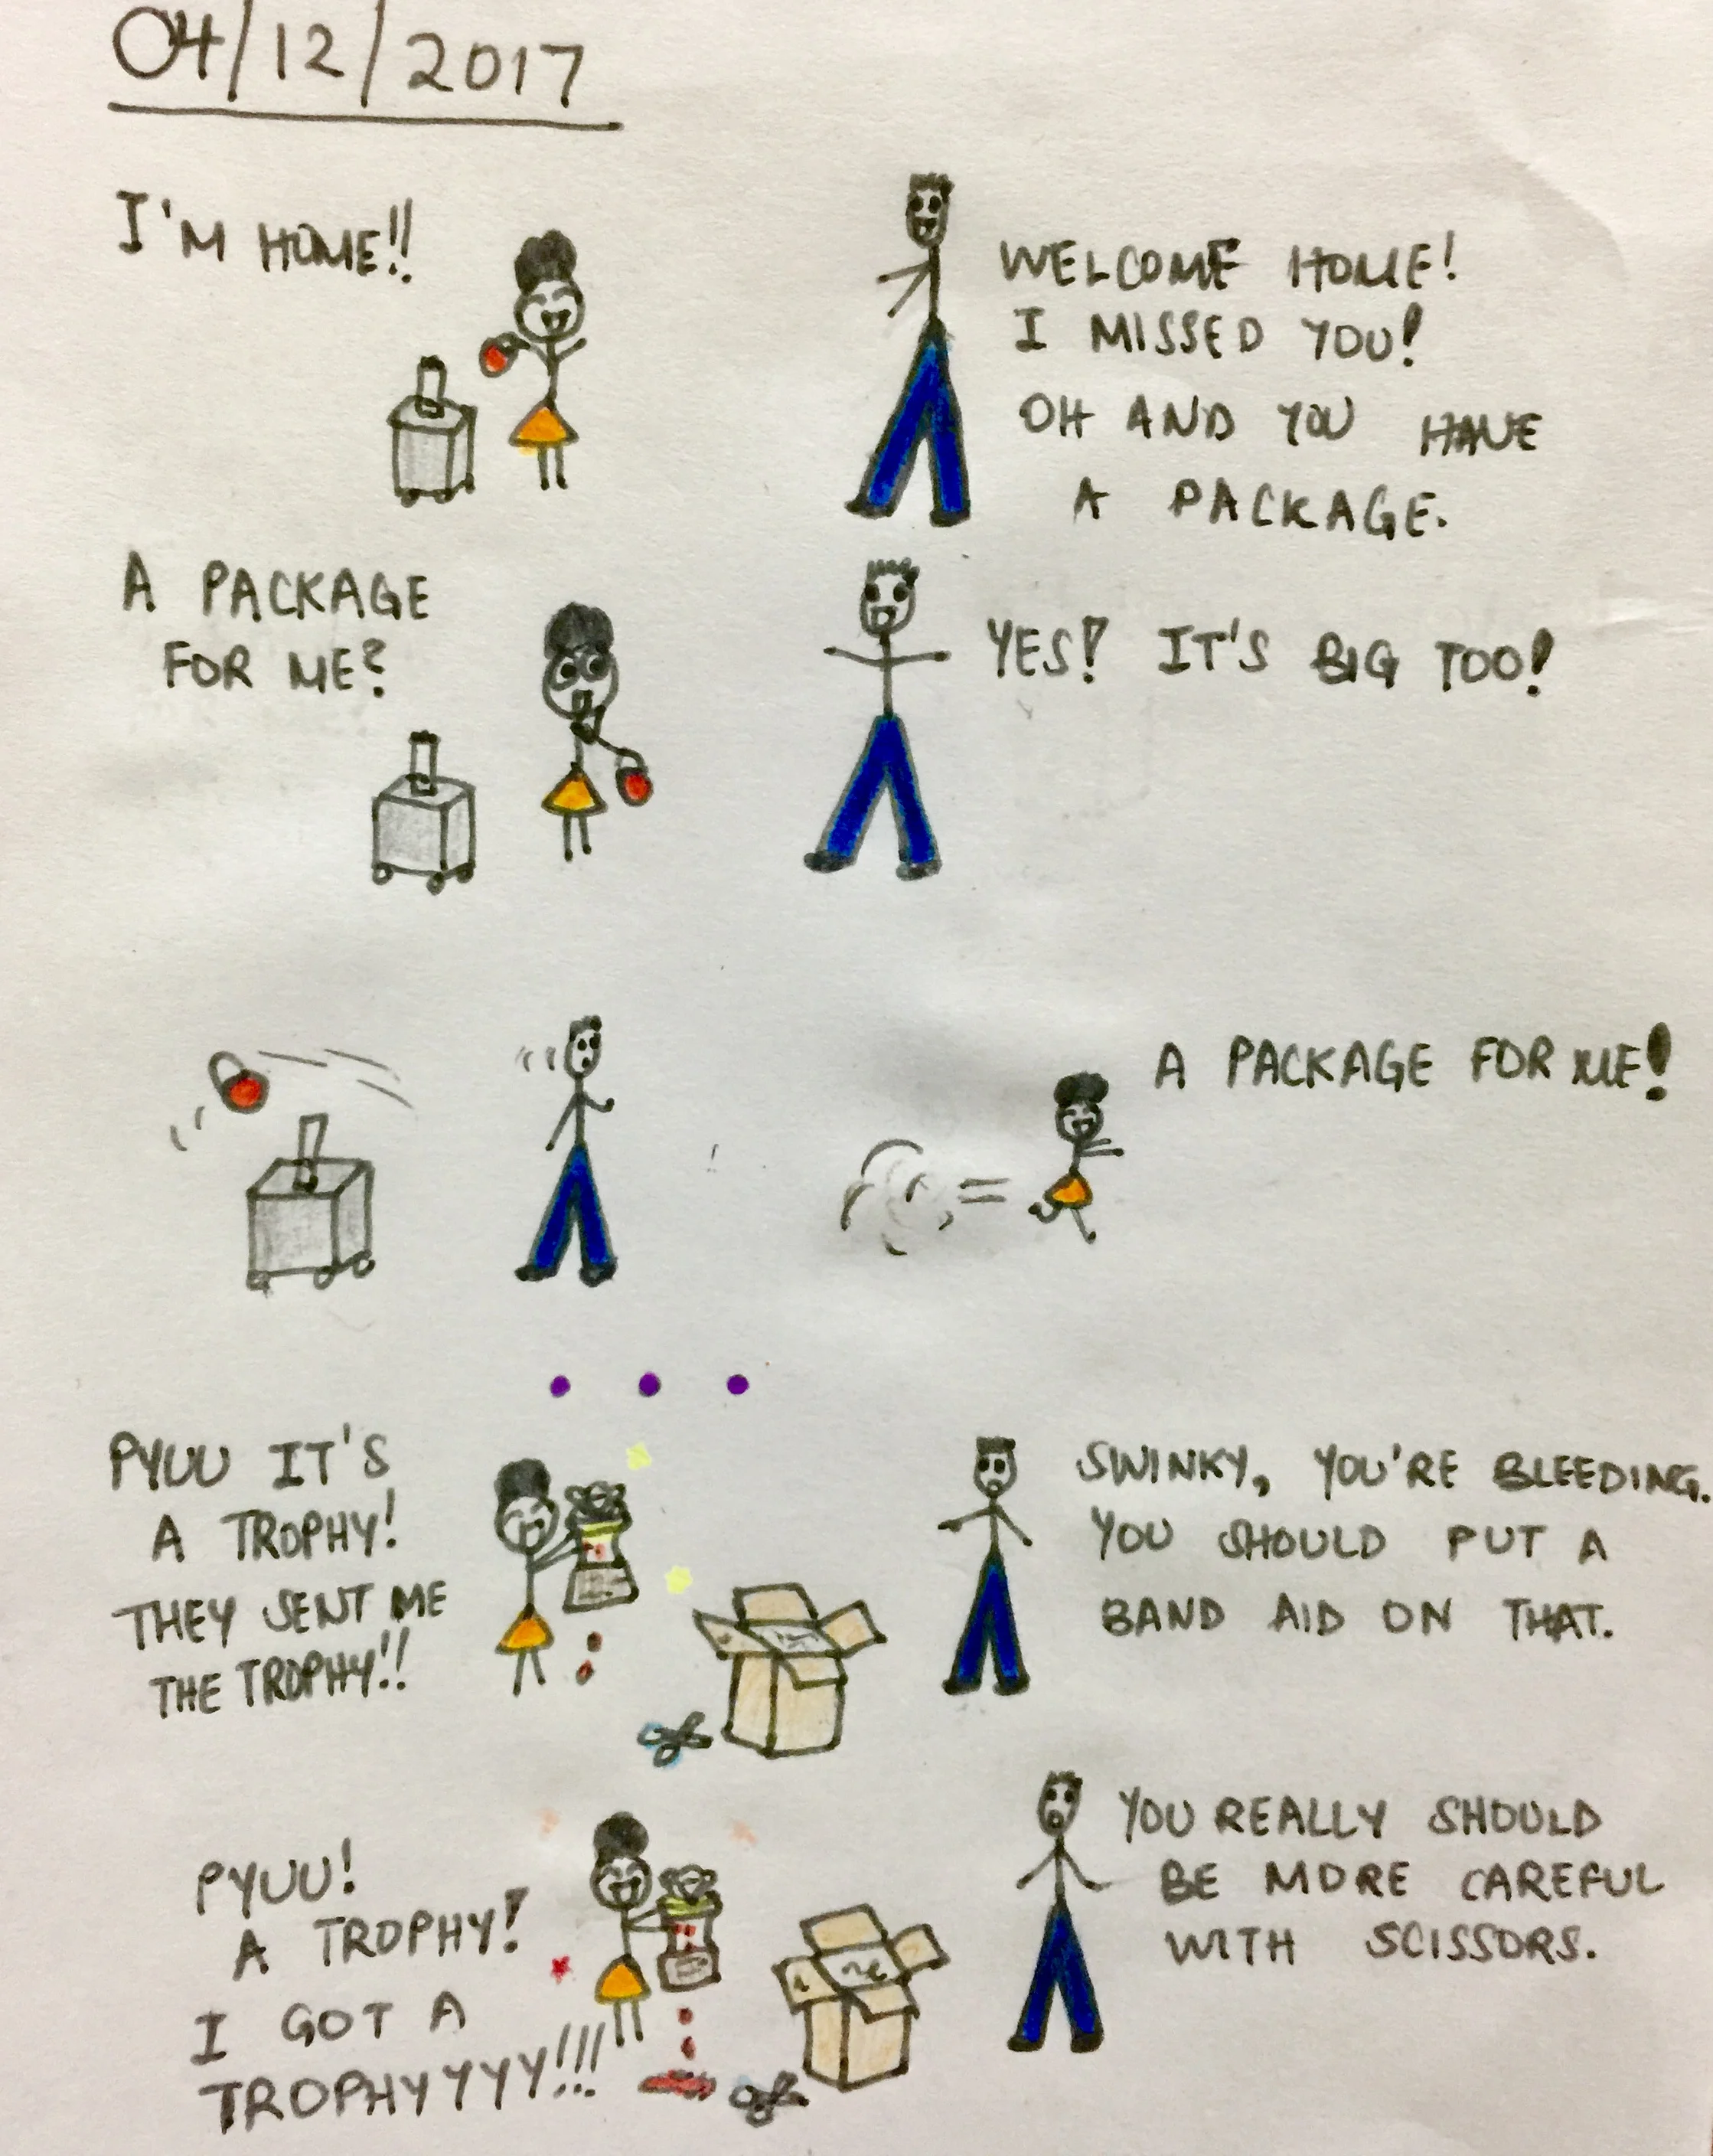 04/12/2017
I'M HOME!!
WELCOME HOME!
I MISSED YOU!
OH AND YOU HAVE
A PACKAGE.
A PACKAGE
FOR ME?
YES! IT'S BIG TOO!
A PACKAGE FOR ME!
PYUU IT'S
A TROPHY!
THEY SENT ME
THE TROPHY!!
SWINKY, YOU'RE BLEEDING.
YOU SHOULD PUT A
BAND AID ON THAT.
PYUU!
A TROPHY!
I GOT A
TROPHYYYYY!!!
YOU REALLY SHOULD
BE MORE CAREFUL
WITH SCISSORS.